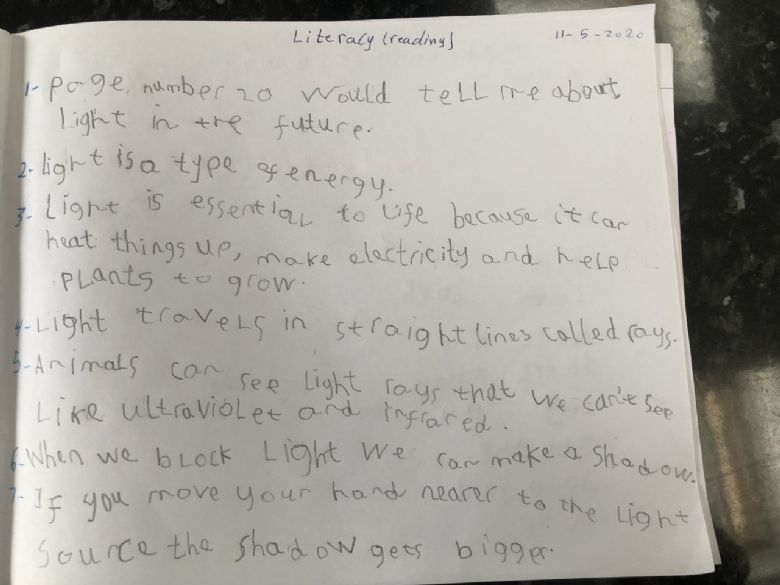 Literacy (reading) 11-5-2020
1- page number 20 would tell me about
light in the future.
2- light is a type of energy.
3- Light is essential to life because it can
heat things up, make electricity and help
plants to grow.
4- Light travels in straight lines called rays.
5- Animals can see light rays that we can't see
Like ultraviolet and infrared.
6- When we block Light we can make a shadow.
7- If you move your hand nearer to the light
source the shadow gets bigger.